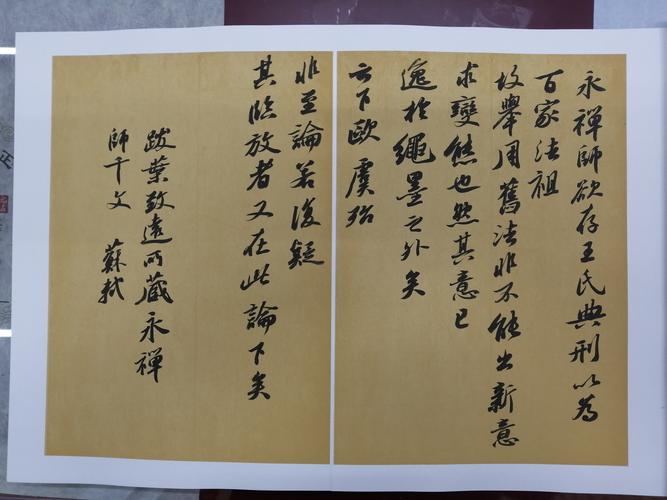 永禪師欲存王氏典刑以為
百家法祖
故舉用舊法非不能出新意
求變態也然其意已
逸於繩墨之外矣
云下歐虞殆
非至論若復疑
其臨放者又在此論下矣
跋葉致遠所藏永禪
師千文 蘇軾